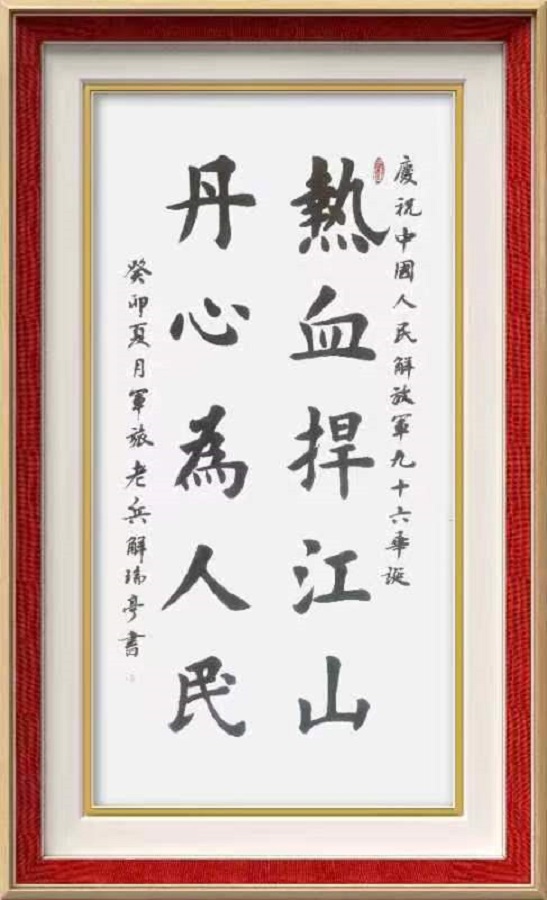 慶祝中國人民解放軍九十六華誕
熱血捍江山
丹心為人民
癸卯夏月軍旅老兵解瑞亭書